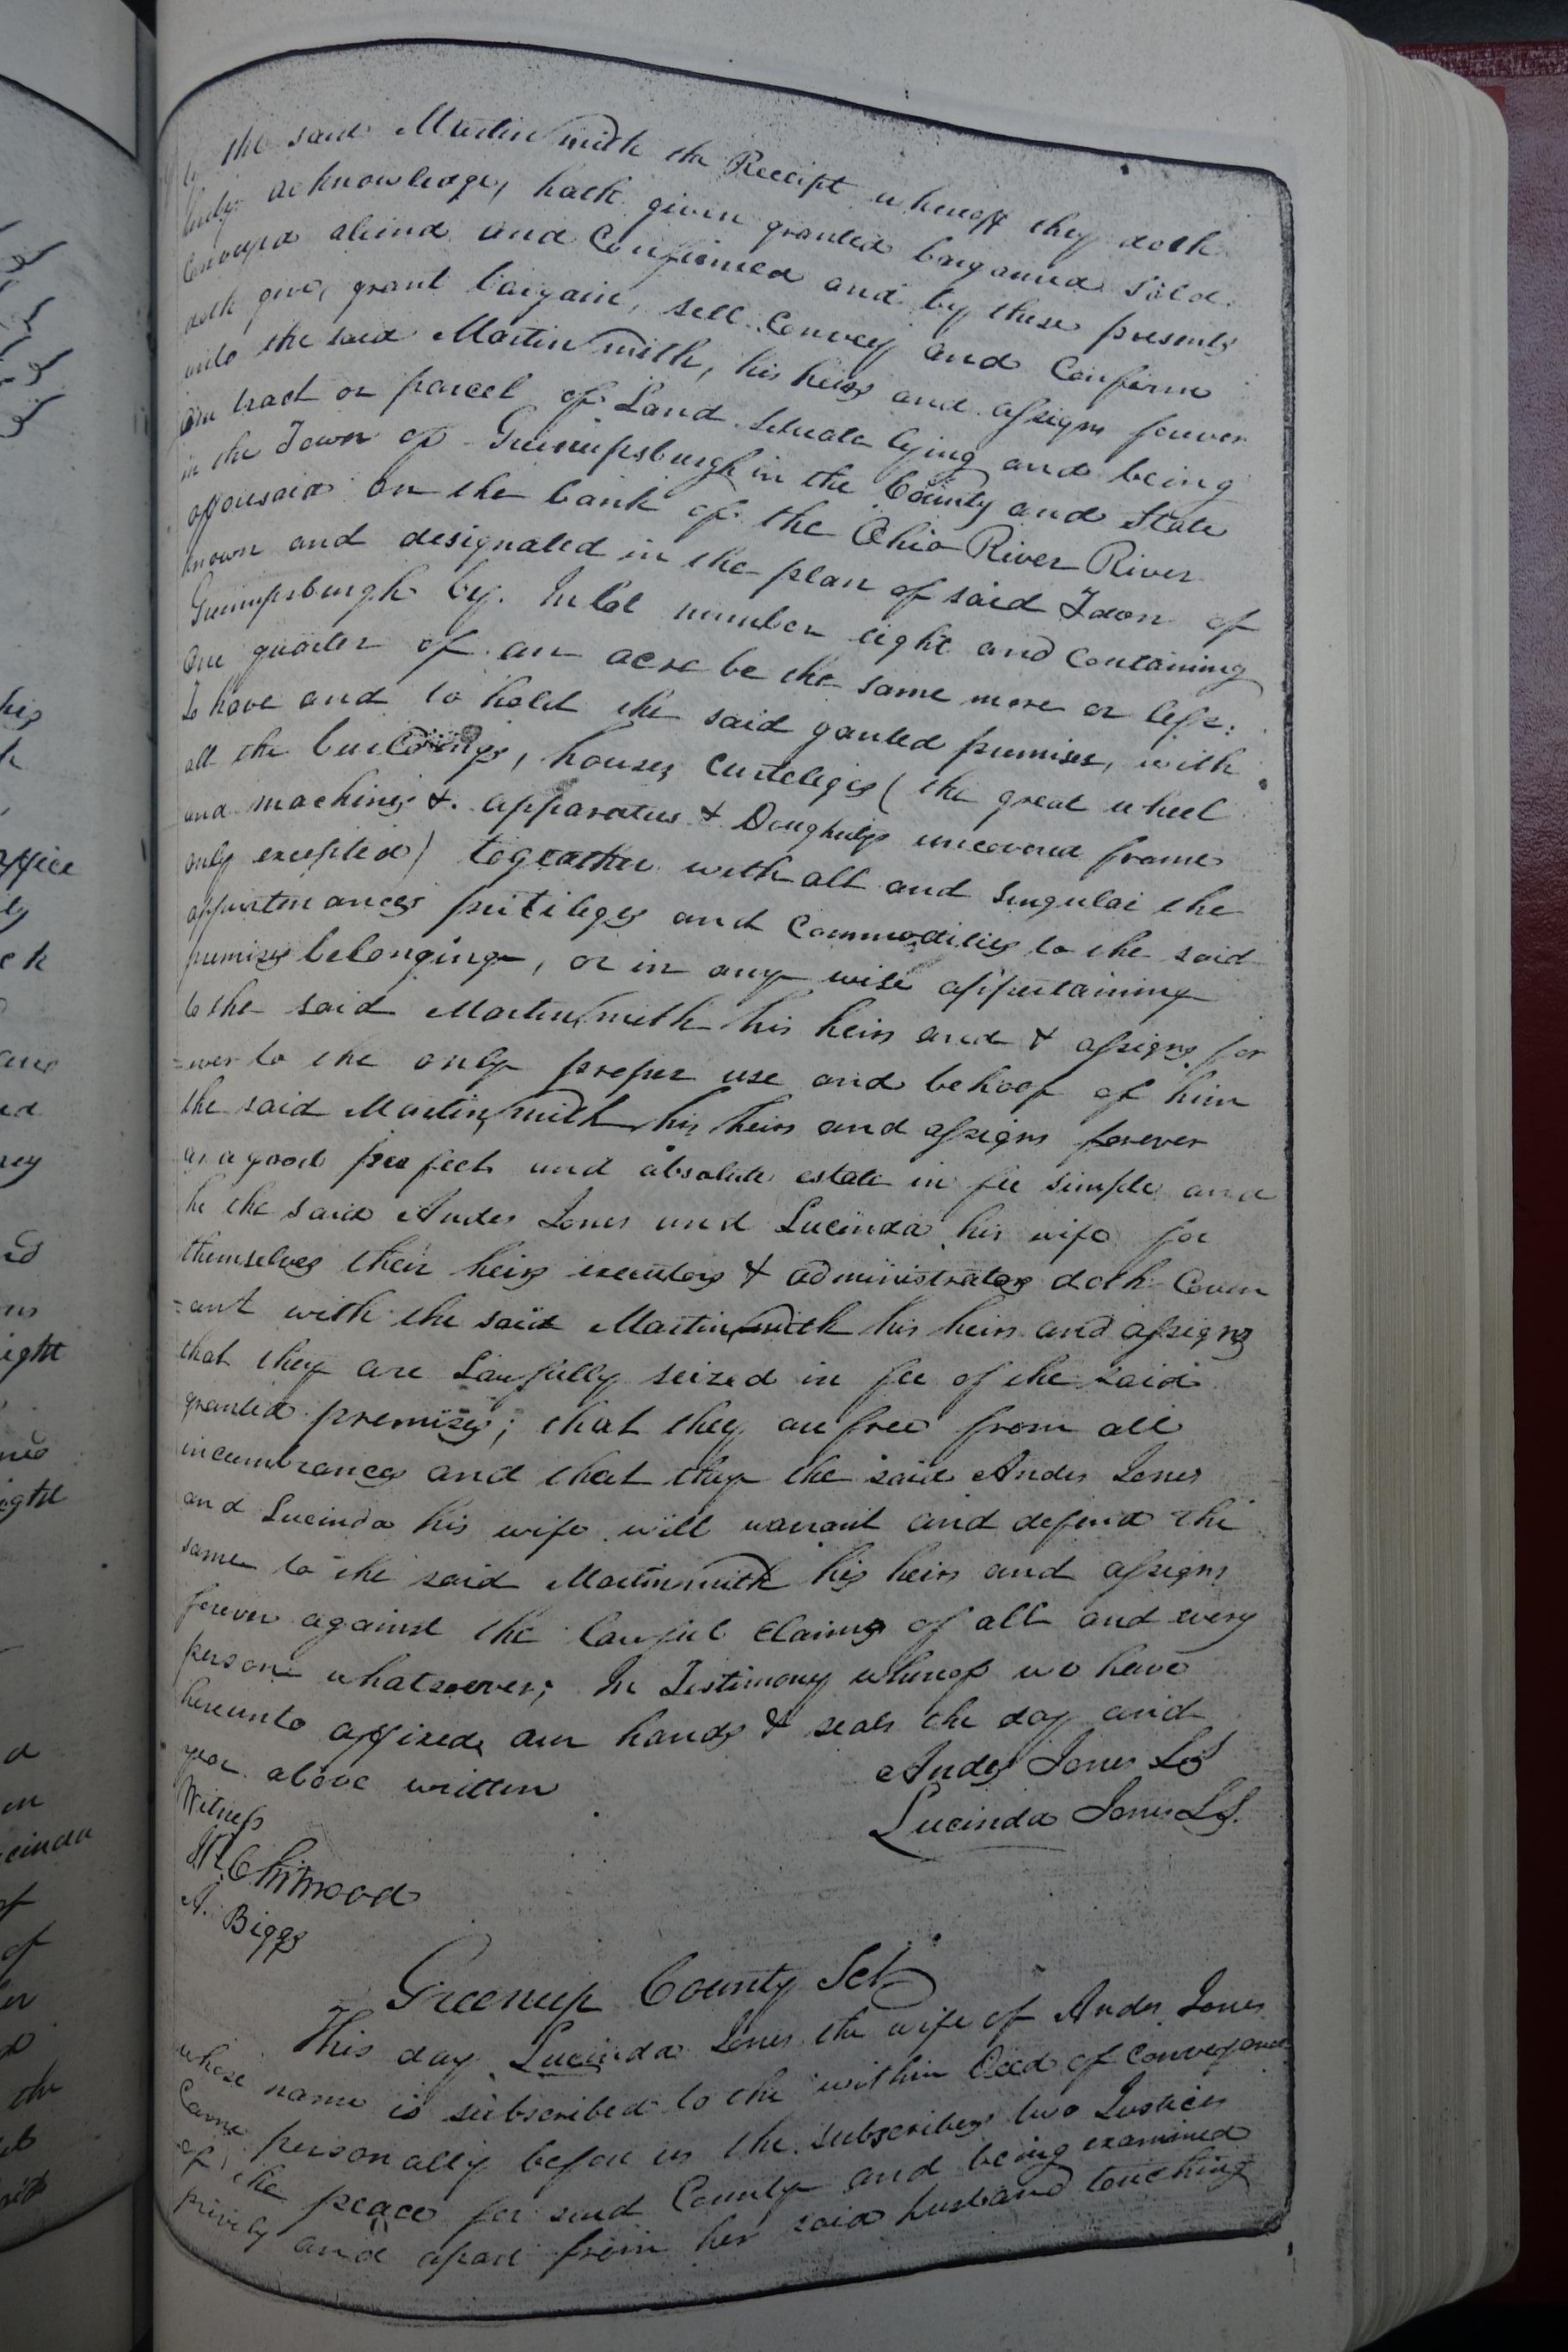 by the said Martin Smith the Receipt whereoff they doth
hereby acknowledge, hath given granted bargained sold
Conveyed aliend and Confirmed and by these presents
doth give, grant bargain, sell Convey and Confirm
unto the said Martin Smith, his heirs and assigns forever
one tract or parcel of Land Situate lying and being
in the Town of Greenupsburgh in the County and State
afforesaid on the bank of the Ohio River River
known and designated in the plan of said Town of
Greenupsburgh by Inlot number eight and Containing
One quarter of an acre be the same more or less:
To have and to hold the said ganted premises, with
all the buildings, houses Curteliges (the great wheel
and machines & apparatus & uncovered frame
only excepted) togeather with all and Singular the
appurtenances privileges and Commodities to the said
premises belonging, or in any wise appertaining
to the said Martin Smith his heirs and & assigns for
=ever to the only proper use and behoof of him
the said Martin Smith his heirs and assigns forever
as a good perfect and absolute estate in fee simple and
he the said Ander Jones and Lucinda his wife for
themselves their heirs executors & administrators doth Coven
=ant with the said Martin Smith his heirs and assigns
that they are Lawfully seized in fee of the said
granted premises; that they are free from all
incumbrances and that they the said Ander Jones
and Lucinda his wife will warrant and defend the
same to the said Martin Smith his heirs and assigns
forever against the lawful Claims of all and every
person whatsoever; In Testimony whereof we have
hereunto affixed our hands & seals the day and
year above written
Ander Jones LS
Lucinda Jones LS.
Witness
Chitwood
A. Biggs
Greenup County Sct
This day Lucinda Jones the wife of Ander Jones
whose name is subscribed to the within Deed of Conveyance
Came personally before us the subscribers two Justices
of the peace for said County and being examined
privily and apart from her said husband touching